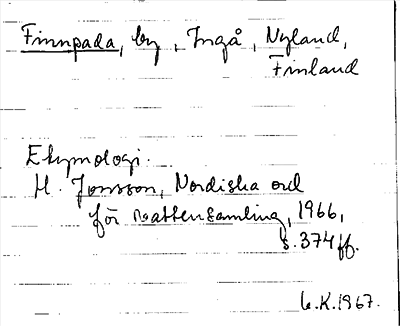 Finnpada, by, Ingå, Nyland,
Finland
Etymologi.
H. Jonsson, Nordiska ord
för vattensamling, 1966,
s. 374 ff.
G.K. 1967.